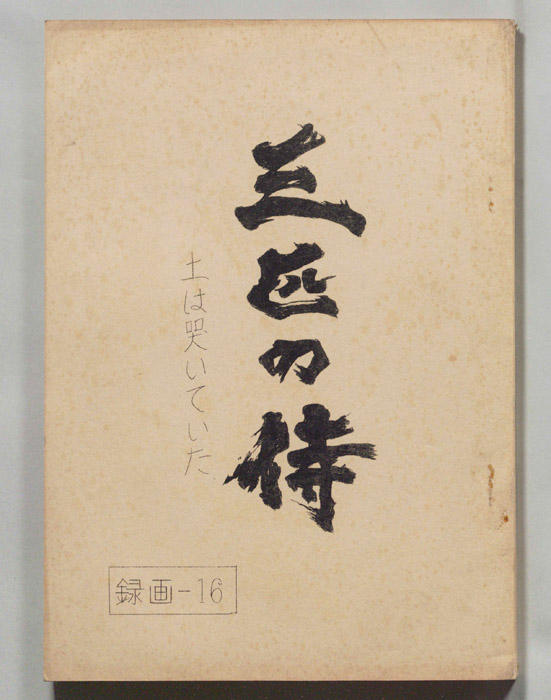 三匹の侍
土は哭いていた
録画-16